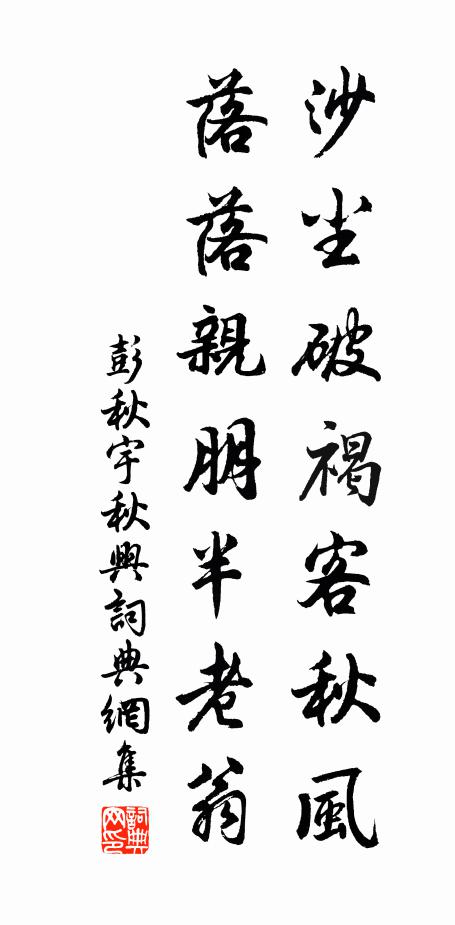 沙尘破褐客秋風
落落親朋半老翁
彭秋宇秋興詞典網集
詞典网印